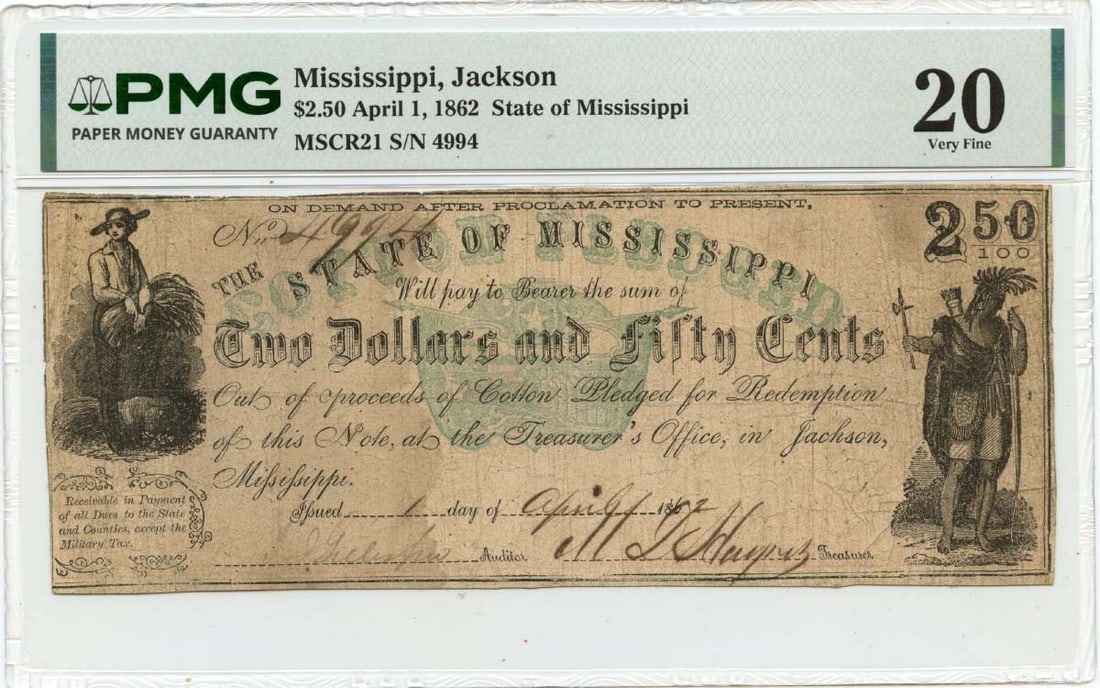 PMG
PAPER MONEY GUARANTY
Mississippi, Jackson
$2.50 April 1, 1862 State of Mississippi
MSCR21 S/N 4994
20
Very Fine
ON DEMAND AFTER PROCLAMATION TO PRESENT,
No. 4994
2 50/100
COTTON PLEDGED
THE STATE OF MISSISSIPPI
Will pay to Bearer the sum of
Two Dollars and Fifty Cents
Out of proceeds of Cotton Pledged for Redemption
of this Note, at the Treasurer's Office, in Jackson,
Mississippi.
Issued 1 day of April 1862
Auditor
Treasurer
Receivable in Payment
of all Dues to the State
and Counties, except the
Military Tax.